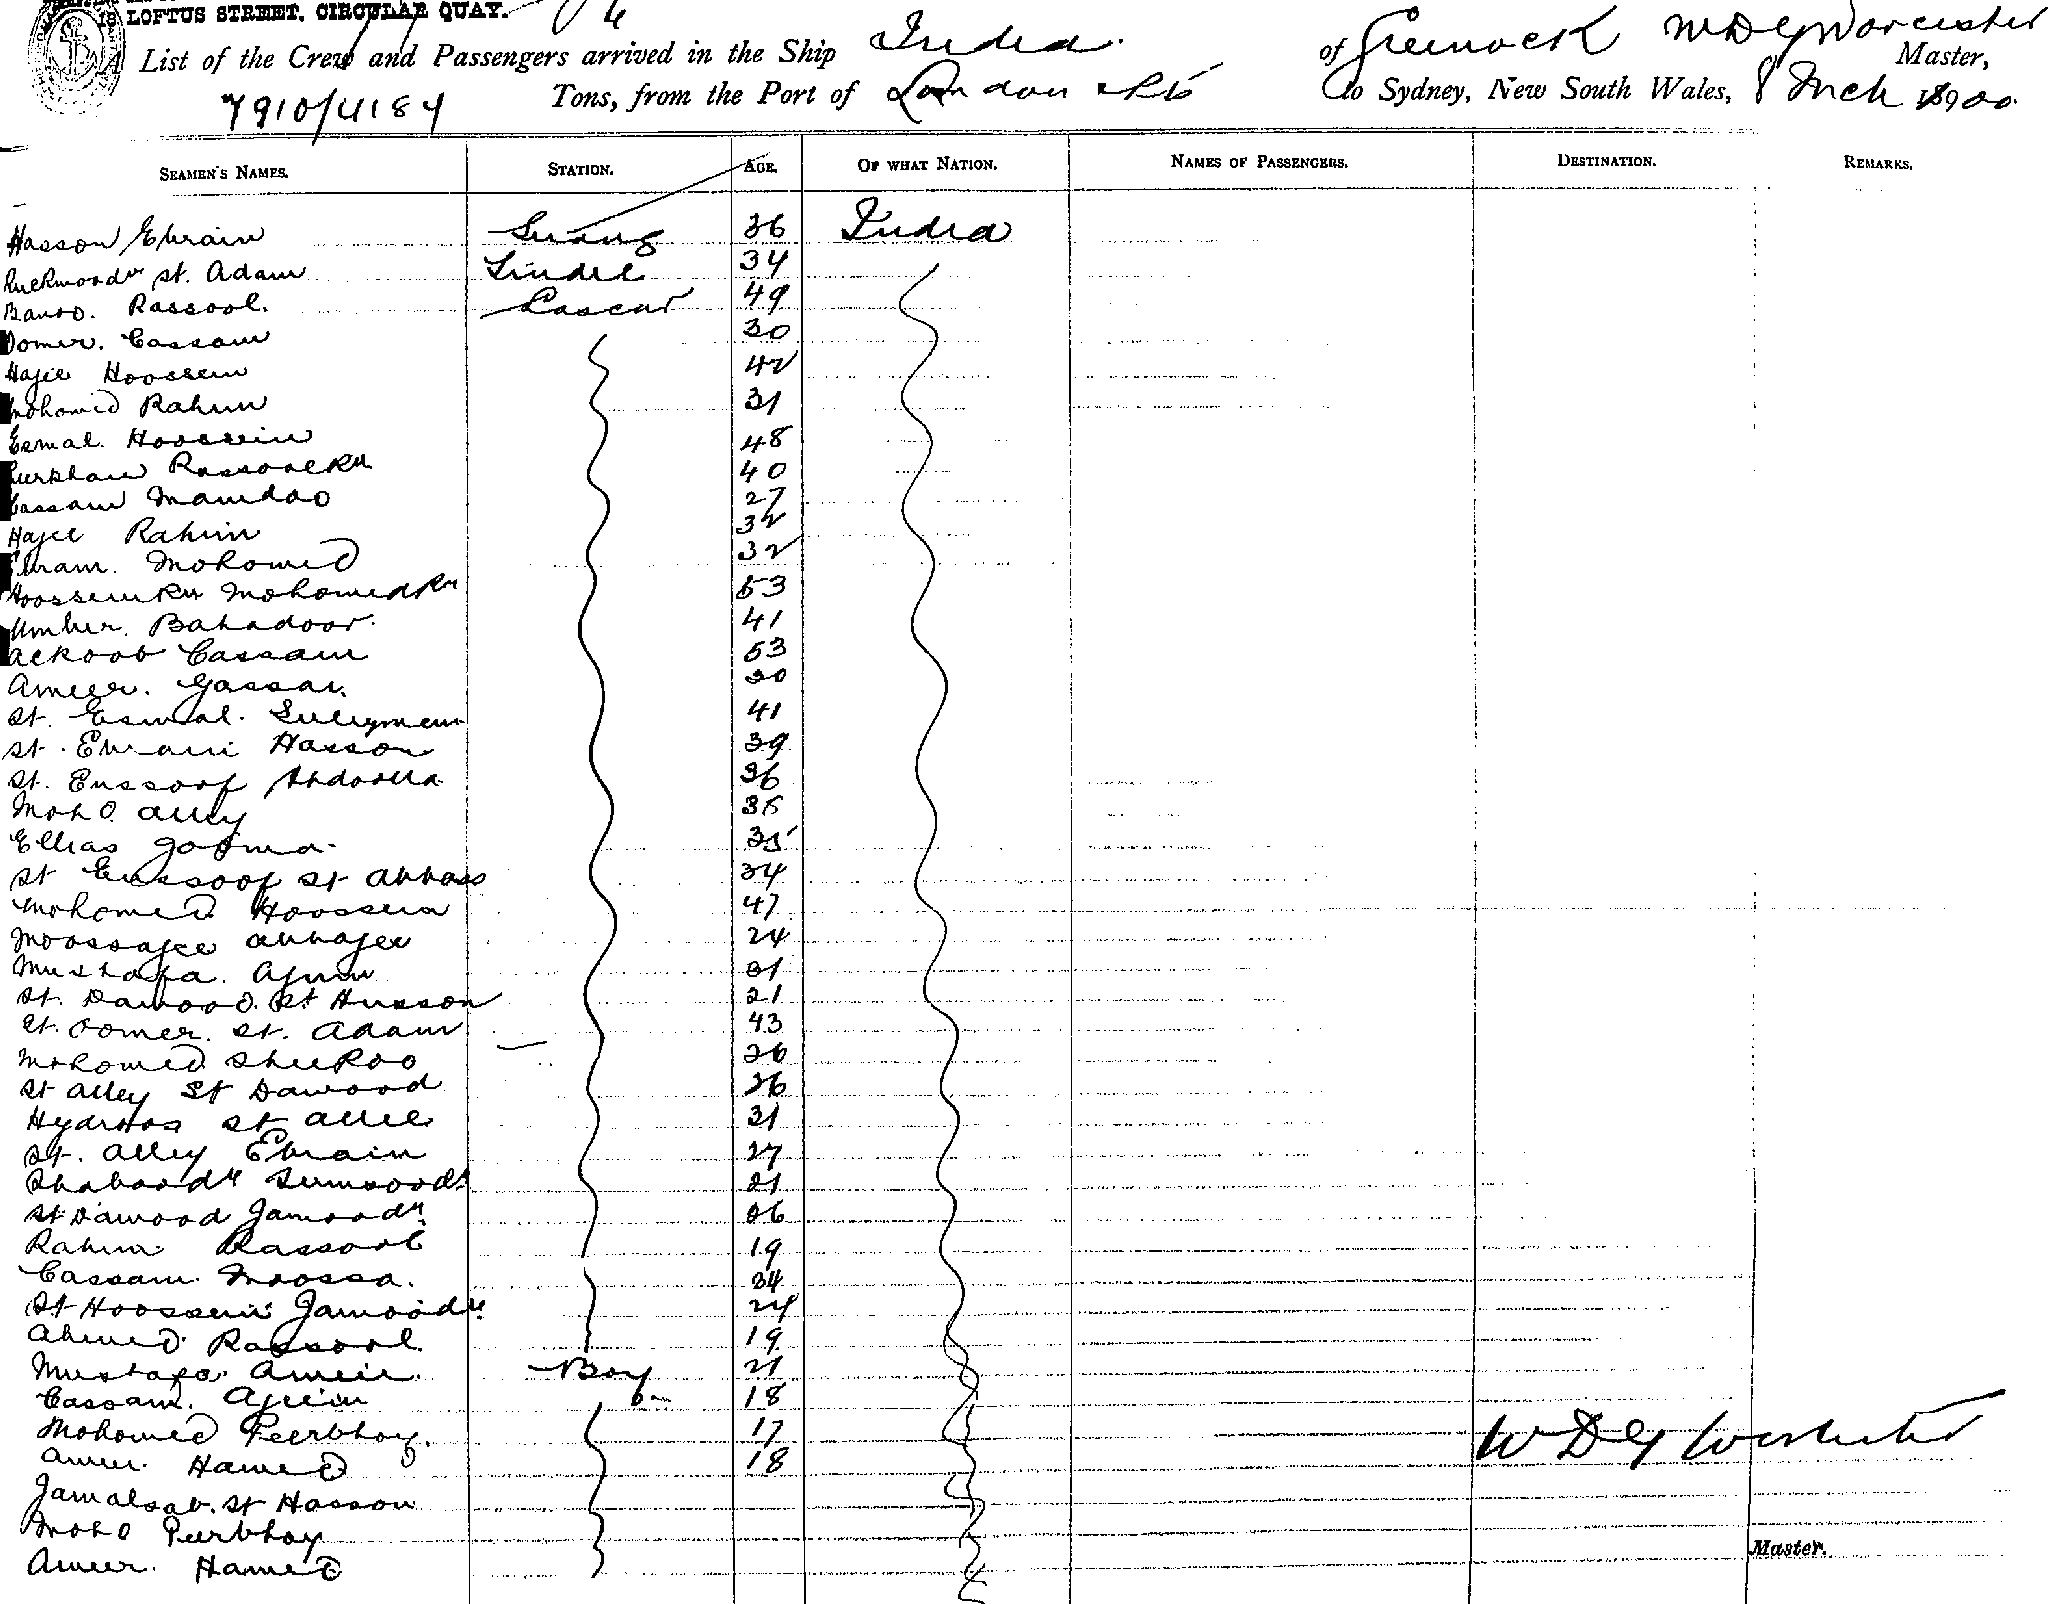 18 LOFTUS STREET, CIRCULAR QUAY.
List of the Crew and Passengers arrived in the Ship Indra. of Greenock W D G Worcester Master,
7910/4184 Tons, from the Port of London to Sydney, New South Wales, 8 Mch 1900.
SEAMEN'S NAMES. STATION. AGE. OF WHAT NATION. NAMES OF PASSENGERS. DESTINATION. REMARKS.
Hasson Ebraim 36 India
St. Adam Tindel 34
Banoo. Rassool. Lascar 49
Oomer. Cassam 30
Hajee Hoossein 42
Mohomed Rahim 31
Esmal. Hoossein 48
40
Cassam Mamdoo 27
Hajee Rahim 32
Ebram. Mohomed 32
Hoosseinkn Mohomedkn 53
Umber. Bahadoor. 41
Ackoob Cassam 53
Ameer. 30
St. Esmal. Suleymem 41
St. Ebraim Hasson 39
St. Eussoof Abdoolla 36
Moh'd Alley 35
Ellias Jooma. 35
St Eussoof St Abbass 34
Mohomed Hoossein 47
Moossajee Abbajee 24
Mustafa. 31
St. Dawood. St Husson 21
St. Oomer. St. Adam 43
Mohomed Sheekoo 26
St Alley St Dawood 26
St Allee 31
St. Alley Ebraim 27
21
St Dawood Jamoodn 36
Rahim Rassool 19
Cassam. Moossa. 34
St Hoossein Jamoodn 24
Ahmed Rassool 19
Mustafa. Ameer. Boy 21
Cassam. 18
Mohomed Peerbhoy. 17
Ameer. Hamed 18
W D G Worcester
Jamalsab. St Hasson
Moh'd Peerbhoy
Master.
Ameer. Hamed